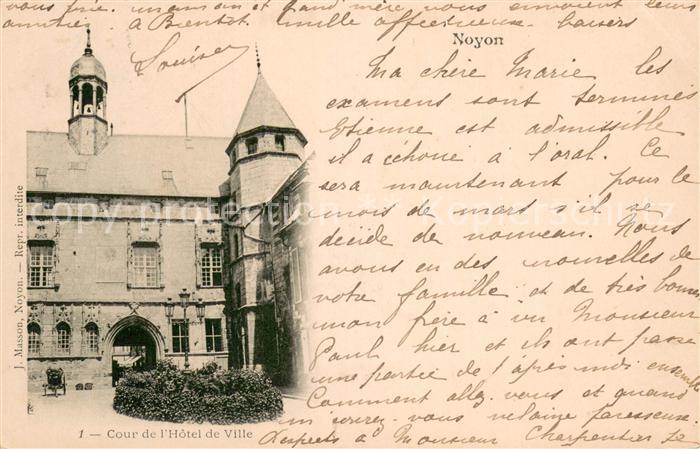 Noyon
Ma chère Marie les
examens sont terminés
Etienne est admissible
il a échoué à l'oral. Ce
sera maintenant pour le
mois de mars s'il se
décide de nouveau. Nous
avons eu des nouvelles de
votre famille et de très bonnes
mon frère à vu Monsieur
Paul hier et ils ont passé
une partie de l'après midi ensemble
Comment allez-vous et quand
m'écrirez-vous vilaine paresseuse.
Respects à Monsieur Charpentier Je
vous prie. maman et grand mère vous envoient leurs
amitiés. à Bientôt. mille affectueux baisers
Louise
J. Masson, Noyon. — Repr. interdite
1 — Cour de l'Hôtel de Ville
Copyright Kopierschutz